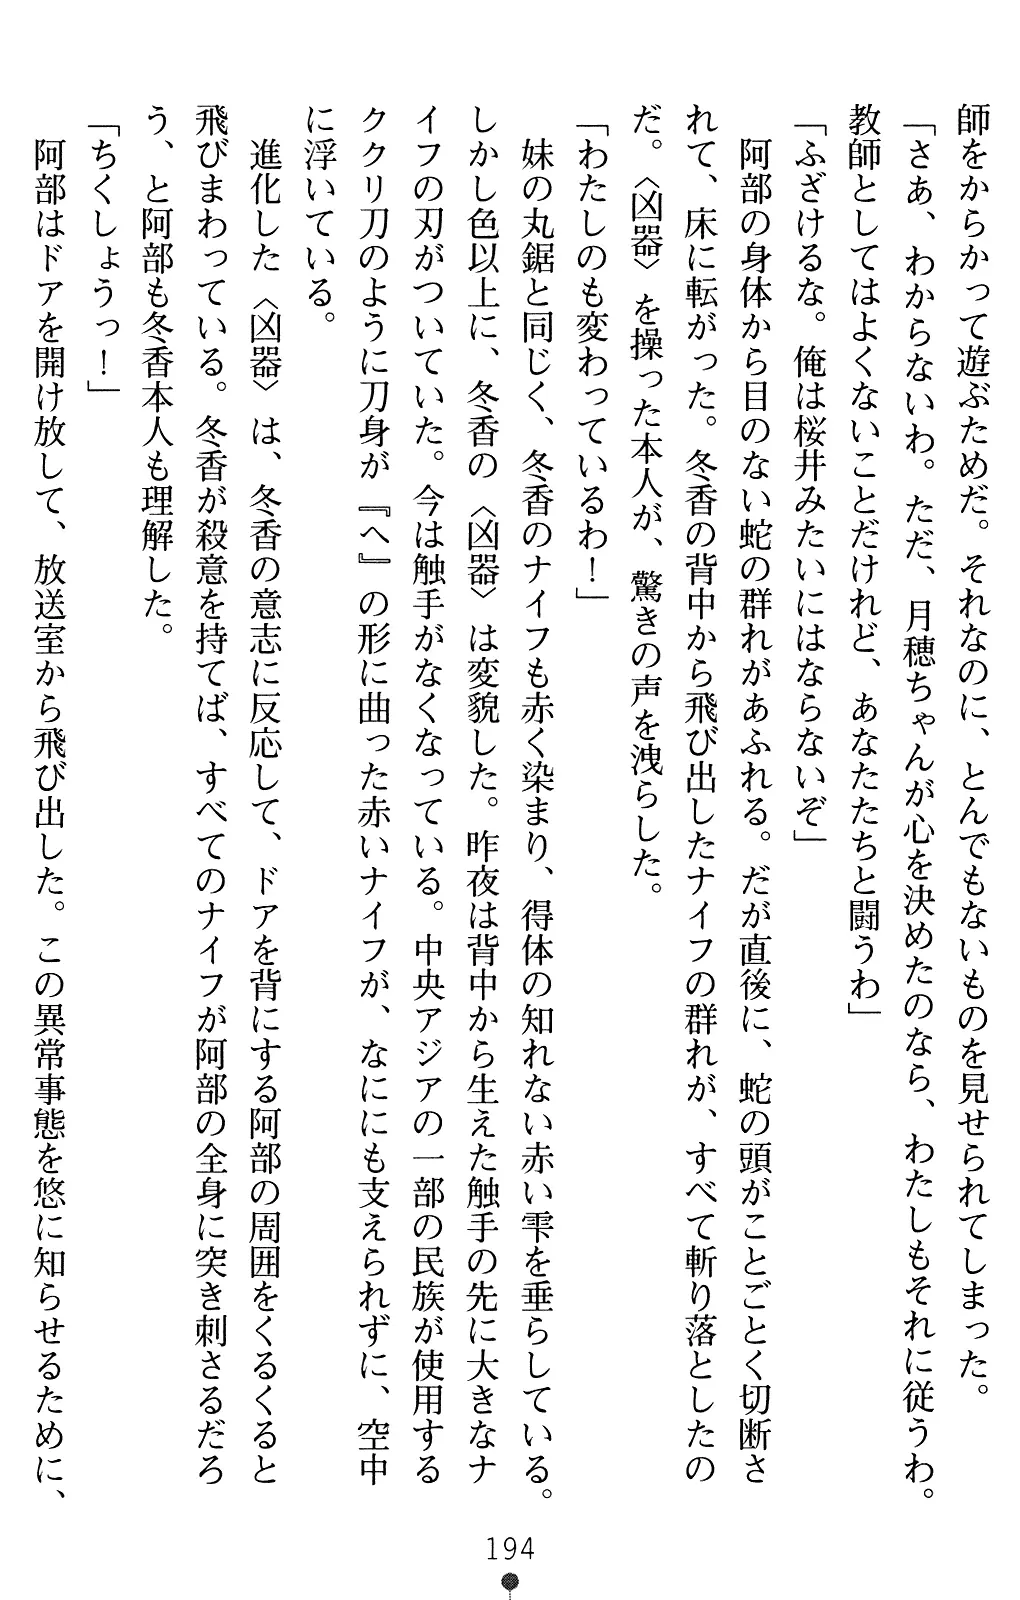 師をからかって遊ぶためだ。それなのに、とんでもないものを見せられてしまった。
「さあ、わからないわ。ただ、月穂ちゃんが心を決めたのなら、わたしもそれに従うわ。
教師としてはよくないことだけれど、あなたたちと闘うわ」
「ふざけるな。俺は桜井みたいにはならないぞ」
阿部の身体から目のない蛇の群れがあふれる。だが直後に、蛇の頭がことごとく切断さ
れて、床に転がった。冬香の背中から飛び出したナイフの群れが、すべて斬り落としたの
だ。〈凶器〉を操った本人が、驚きの声を洩らした。
「わたしのも変わっているわ！」
妹の丸鋸と同じく、冬香のナイフも赤く染まり、得体の知れない赤い雫を垂らしている。
しかし色以上に、冬香の〈凶器〉は変貌した。昨夜は背中から生えた触手の先に大きなナ
イフの刃がついていた。今は触手がなくなっている。中央アジアの一部の民族が使用する
ククリ刀のように刀身が『へ』の形に曲った赤いナイフが、なににも支えられずに、空中
に浮いている。
進化した〈凶器〉は、冬香の意志に反応して、ドアを背にする阿部の周囲をくるくると
飛びまわっている。冬香が殺意を持てば、すべてのナイフが阿部の全身に突き刺さるだろ
う、と阿部も冬香本人も理解した。
「ちくしょうっ！」
阿部はドアを開け放して、放送室から飛び出した。この異常事態を悠に知らせるために、
194